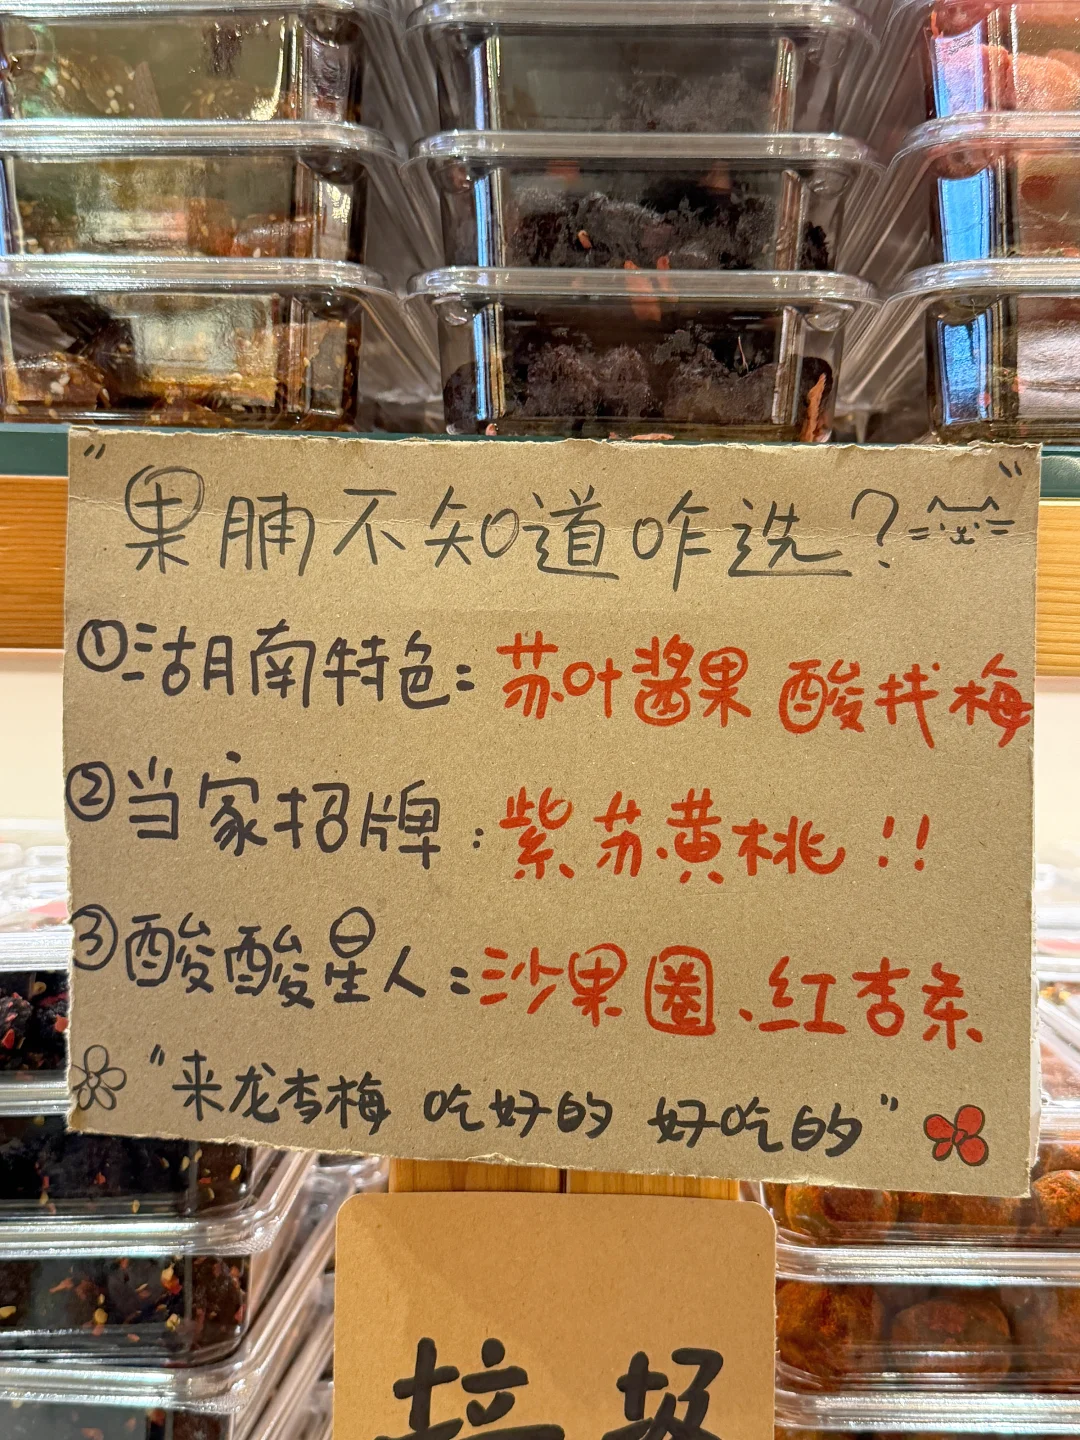 "果脯不知道咋选?"
①湖南特色:苏叶酱果 酸找梅
②当家招牌:紫苏黄桃!!
③酸酸星人:沙果圈、红杏条
"来龙杏梅 吃好的 好吃的"
垃圾